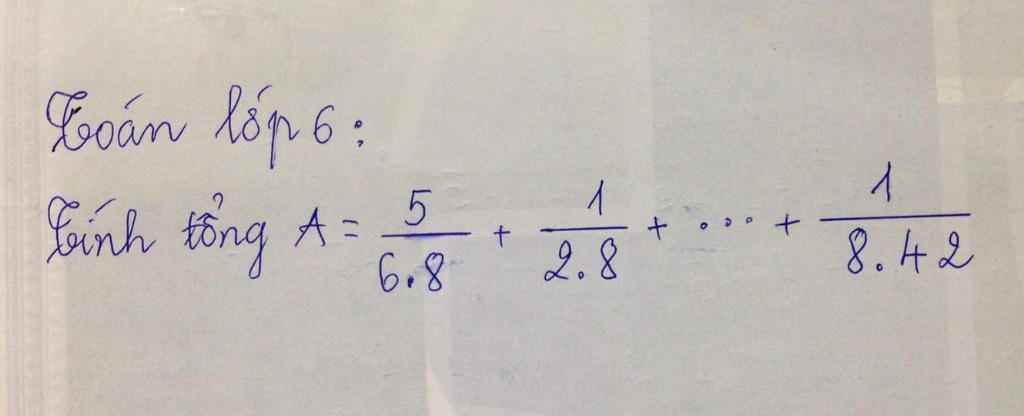 Toán lớp 6:
Tính tổng A = 5/6.8 + 1/2.8 + ... + 1/8.42